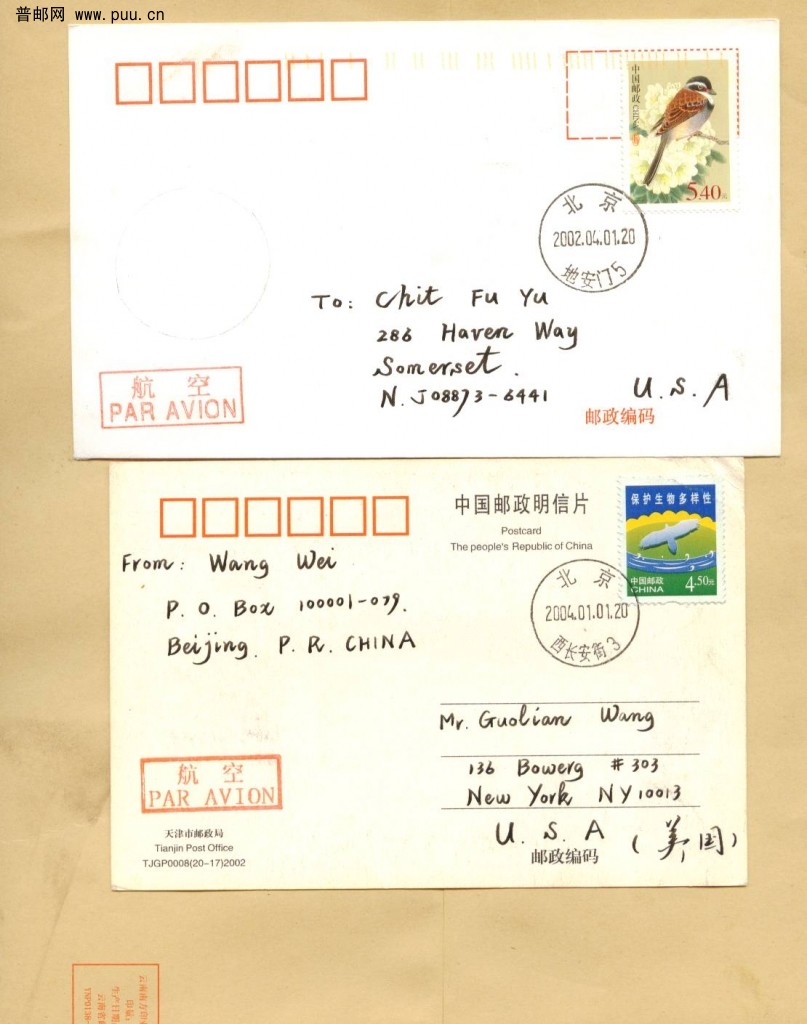 普邮网 www.puu.cn
中国邮政 CHINA
5.40元
北京
2002.04.01.20
地安门5
To: Chit Fu Yu
286 Haven Way
Somerset.
N.J 08873-6441
U.S.A
邮政编码
航空
PAR AVION
中国邮政明信片
Postcard
The people's Republic of China
保护生物多样性
中国邮政
CHINA
4.50元
北京
2004.01.01.20
西长安街3
From: Wang Wei
P.O. Box 100001-079.
Beijing. P.R. CHINA
Mr. Guolian Wang
136 Bowerg #303
New York NY 10013
U.S.A (美国)
邮政编码
航空
PAR AVION
天津市邮政局
Tianjin Post Office
TJGP0008(20-17)2002